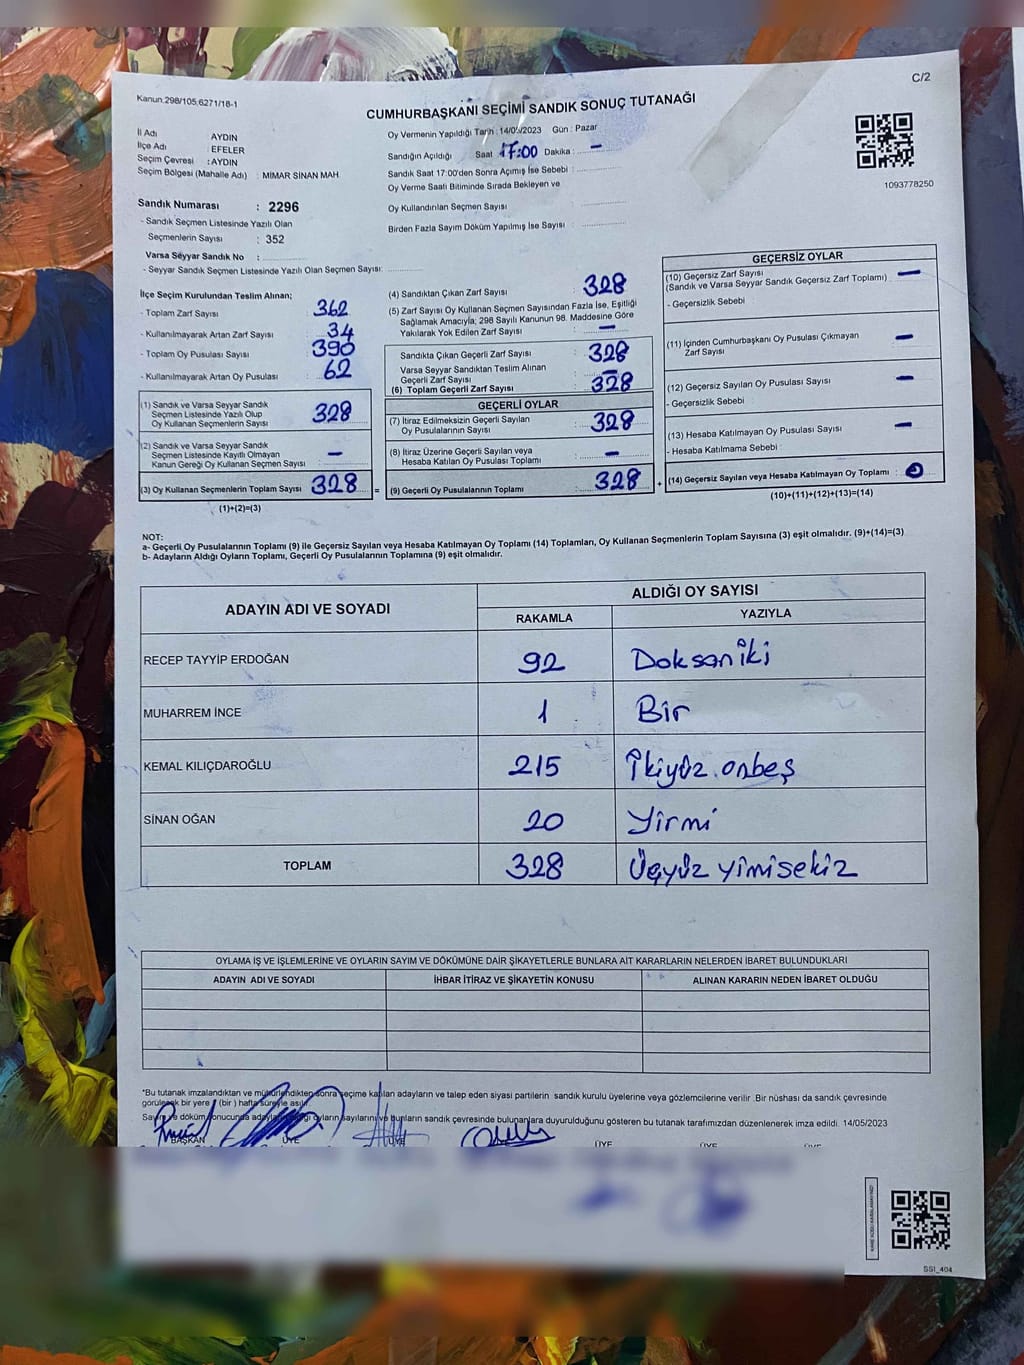 C/2
Kanun.298/105;6271/18-1
CUMHURBAŞKANI SEÇİMİ SANDIK SONUÇ TUTANAĞI
İl Adı AYDIN
İlçe Adı : EFELER
Seçim Çevresi : AYDIN
Seçim Bölgesi (Mahalle Adı) : MİMAR SİNAN MAH
Oy Vermenin Yapıldığı Tarih : 14/05/2023 Gün : Pazar
Sandığın Açıldığı Saat 17:00 Dakika : –
Sandık Saat 17:00'den Sonra Açımış İse Sebebi :
Oy Verme Saati Bitiminde Sırada Bekleyen ve
Oy Kullandırılan Seçmen Sayısı :
Birden Fazla Sayım Döküm Yapılmış İse Sayısı :
1093778250
Sandık Numarası : 2296
- Sandık Seçmen Listesinde Yazılı Olan
Seçmenlerin Sayısı : 352
Varsa Seyyar Sandık No :
- Seyyar Sandık Seçmen Listesinde Yazılı Olan Seçmen Sayısı:
İlçe Seçim Kurulundan Teslim Alınan;
- Toplam Zarf Sayısı : 362
- Kullanılmayarak Artan Zarf Sayısı : 34
- Toplam Oy Pusulası Sayısı : 390
- Kullanılmayarak Artan Oy Pusulası : 62
(1) Sandık ve Varsa Seyyar Sandık
Seçmen Listesinde Yazılı Olup
Oy Kullanan Seçmenlerin Sayısı : 328
(2) Sandık ve Varsa Seyyar Sandık
Seçmen Listesinde Kayıtlı Olmayan
Kanun Gereği Oy Kullanan Seçmen Sayısı : –
(3) Oy Kullanan Seçmenlerin Toplam Sayısı : 328 =
(1)+(2)=(3)
(4) Sandıktan Çıkan Zarf Sayısı : 328
(5) Zarf Sayısı Oy Kullanan Seçmen Sayısından Fazla İse, Eşitliği
Sağlamak Amacıyla; 298 Sayılı Kanunun 98. Maddesine Göre
Yakılarak Yok Edilen Zarf Sayısı : –
Sandıkta Çıkan Geçerli Zarf Sayısı : 328
Varsa Seyyar Sandıktan Teslim Alınan
Geçerli Zarf Sayısı : –
(6) Toplam Geçerli Zarf Sayısı : 328
GEÇERLİ OYLAR
(7) İtiraz Edilmeksizin Geçerli Sayılan
Oy Pusulalarının Sayısı : 328
(8) İtiraz Üzerine Geçerli Sayılan veya
Hesaba Katılan Oy Pusulası Toplamı : –
(9) Geçerli Oy Pusulalarının Toplamı : 328 +
GEÇERSİZ OYLAR
(10) Geçersiz Zarf Sayısı
(Sandık ve Varsa Seyyar Sandık Geçersiz Zarf Toplamı) : –
- Geçersizlik Sebebi :
(11) İçinden Cumhurbaşkanı Oy Pusulası Çıkmayan
Zarf Sayısı : –
(12) Geçersiz Sayılan Oy Pusulası Sayısı : –
- Geçersizlik Sebebi :
(13) Hesaba Katılmayan Oy Pusulası Sayısı : –
- Hesaba Katılmama Sebebi :
(14) Geçersiz Sayılan veya Hesaba Katılmayan Oy Toplamı : 0
(10)+(11)+(12)+(13)=(14)
NOT:
a- Geçerli Oy Pusulalarının Toplamı (9) ile Geçersiz Sayılan veya Hesaba Katılmayan Oy Toplamı (14) Toplamları, Oy Kullanan Seçmenlerin Toplam Sayısına (3) eşit olmalıdır. (9)+(14)=(3)
b- Adayların Aldığı Oyların Toplamı, Geçerli Oy Pusulalarının Toplamına (9) eşit olmalıdır.
ADAYIN ADI VE SOYADI
ALDIĞI OY SAYISI
RAKAMLA YAZIYLA
RECEP TAYYİP ERDOĞAN 92 Doksaniki
MUHARREM İNCE 1 Bir
KEMAL KILIÇDAROĞLU 215 İkiyüz.onbeş
SİNAN OĞAN 20 Yirmi
TOPLAM 328 Üçyüz yimisekiz
OYLAMA İŞ VE İŞLEMLERİNE VE OYLARIN SAYIM VE DÖKÜMÜNE DAİR ŞİKAYETLERLE BUNLARA AİT KARARLARIN NELERDEN İBARET BULUNDUKLARI
ADAYIN ADI VE SOYADI İHBAR İTİRAZ VE ŞİKAYETİN KONUSU ALINAN KARARIN NEDEN İBARET OLDUĞU
*Bu tutanak imzalandıktan ve mühürlendikten sonra seçime katılan adayların ve talep eden siyasi partilerin sandık kurulu üyelerine veya gözlemcilerine verilir .Bir nüshası da sandık çevresinde
görülecek bir yere 1 (bir ) hafta süreyle asılır.
Sayım ve döküm sonucunda adayların aldığı oyların sayılarını ve bunların sandık çevresinde bulunanlara duyurulduğunu gösteren bu tutanak tarafımızdan düzenlenerek imza edildi. 14/05/2023
BAŞKAN ÜYE ÜYE ÜYE ÜYE ÜYE
SSI_404